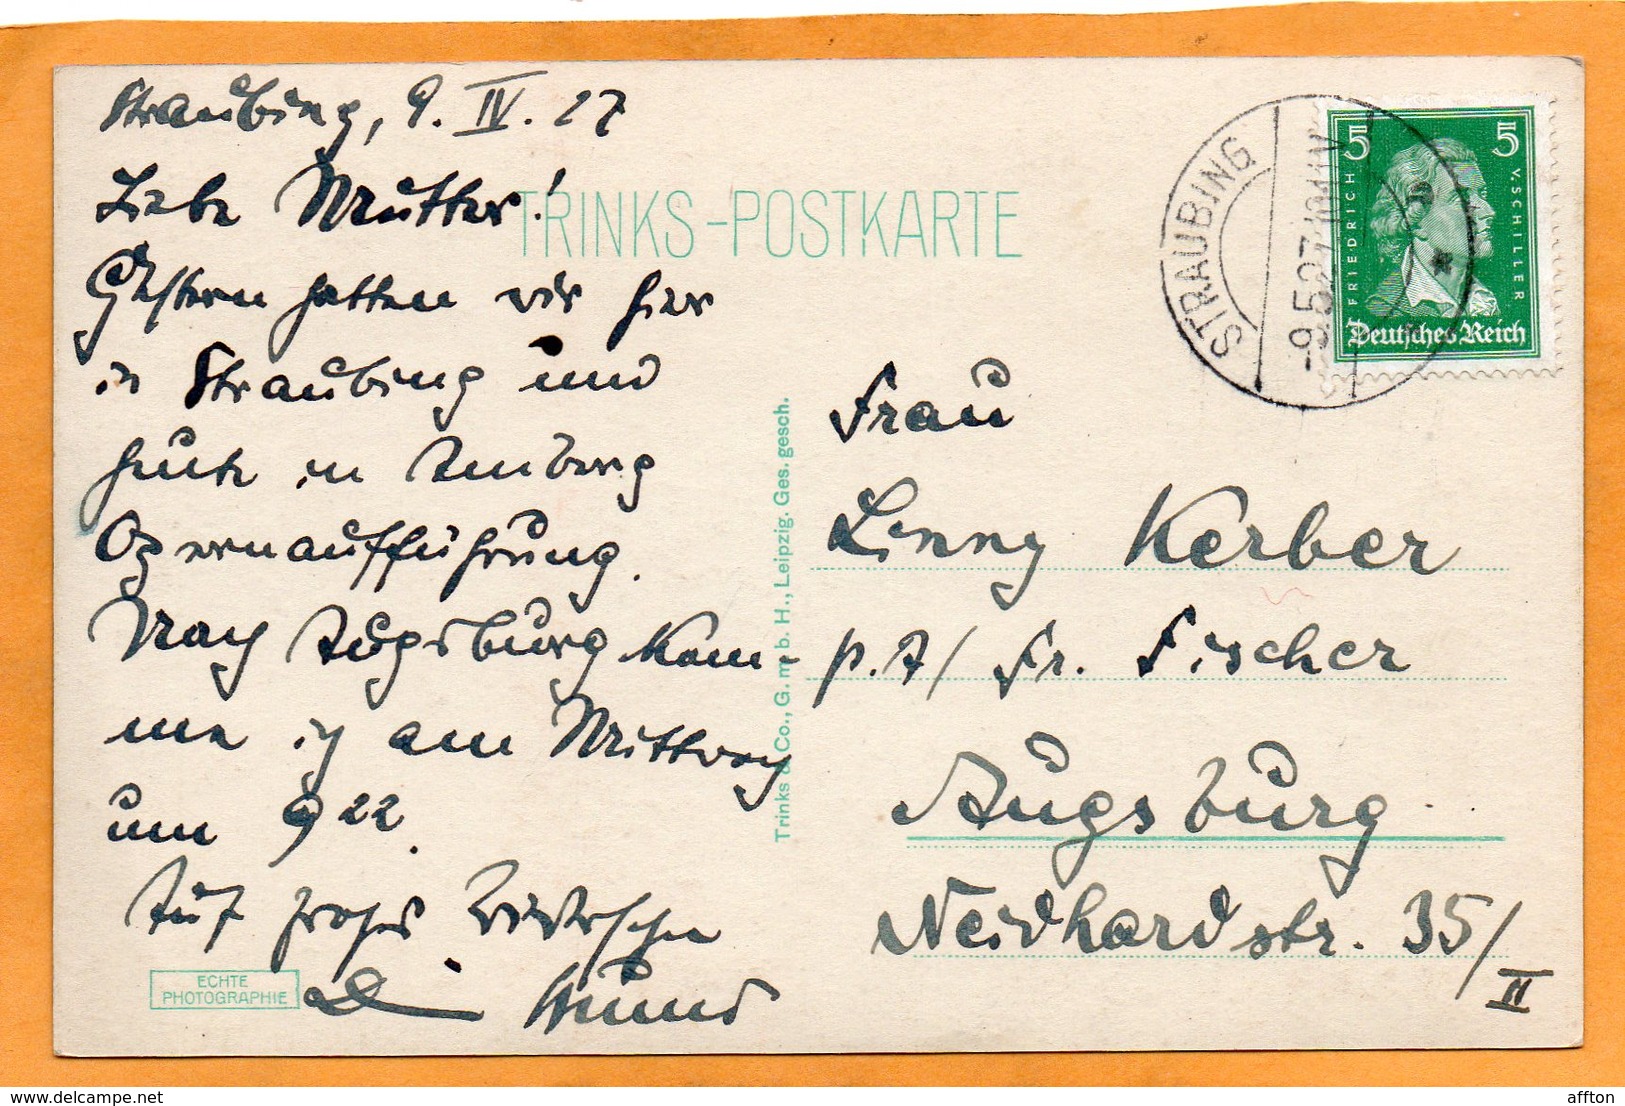 Straubing, 9. IV. 27
Liebe Mutter!
Gestern hatten wir hier
in Straubing und
heute in Amberg
Opernaufführung.
Nach Augsburg kom-
me ich am Mittwoch
um 9 22.
Auf frohes Wiedersehen
Dein
TRINKS-POSTKARTE
ECHTE
PHOTOGRAPHIE
Trinks & Co., G. m. b. H., Leipzig. Ges. gesch.
STRAUBING
-9.5.27.
5 5
FRIEDRICH V. SCHILLER
Deutsches Reich
Frau
Linny Kerber
p. A/ Fr. Fischer
Augsburg
Neidhardstr. 35/II
affton